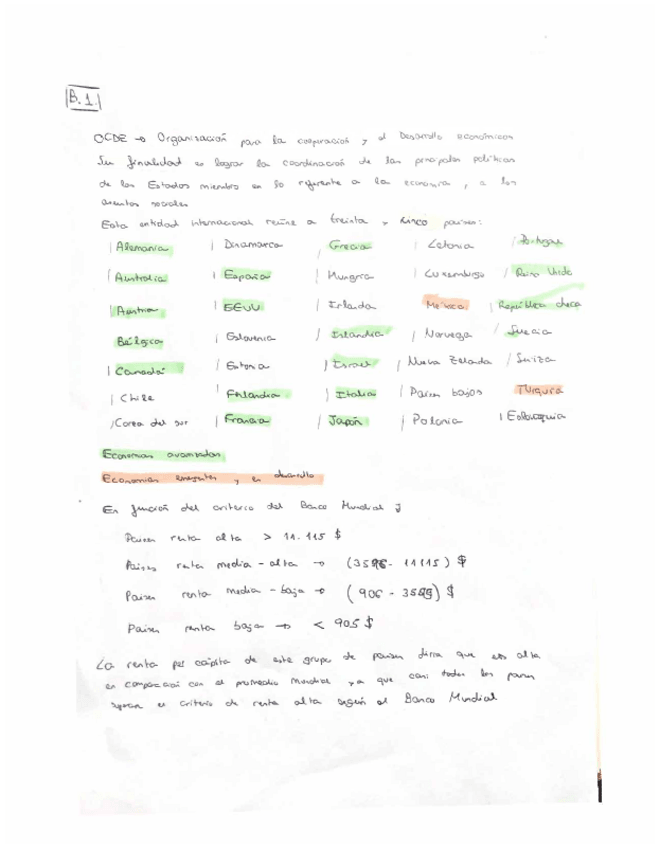 B.1.
OCDE → Organización para la cooperación y el Desarrollo económicos
Su finalidad es lograr la coordinación de las principales políticas
de los Estados miembro en lo referente a la economía, y a los
asuntos sociales
Esta entidad internacional reúne a treinta y cinco países:
| Alemania | Dinamarca | Grecia | Letonia | Portugal
| Australia | España | Hungría | Luxemburgo | Reino Unido
| Austria | EEUU | Irlanda México | República checa
Bélgica | Eslovenia | Islandia | Noruega | Suecia
| Canadá | Estonia | Israel | Nueva Zelanda | Suiza
| Chile | Finlandia | Italia | Países bajos Turquía
| Corea del sur | Francia | Japón | Polonia | Eslovaquia
Economías avanzadas
Economías emergentes y en desarrollo
En función del criterio del Banco Mundial
Países renta alta > 11.115 $
Países renta media-alta → (3596-11115) $
Países renta media-baja → (906 - 3595) $
Países renta baja → < 905 $
La renta per cápita de este grupo de países diría que es alta
en comparación con el promedio mundial ya que casi todos los países
superan el criterio de renta alta según el Banco Mundial